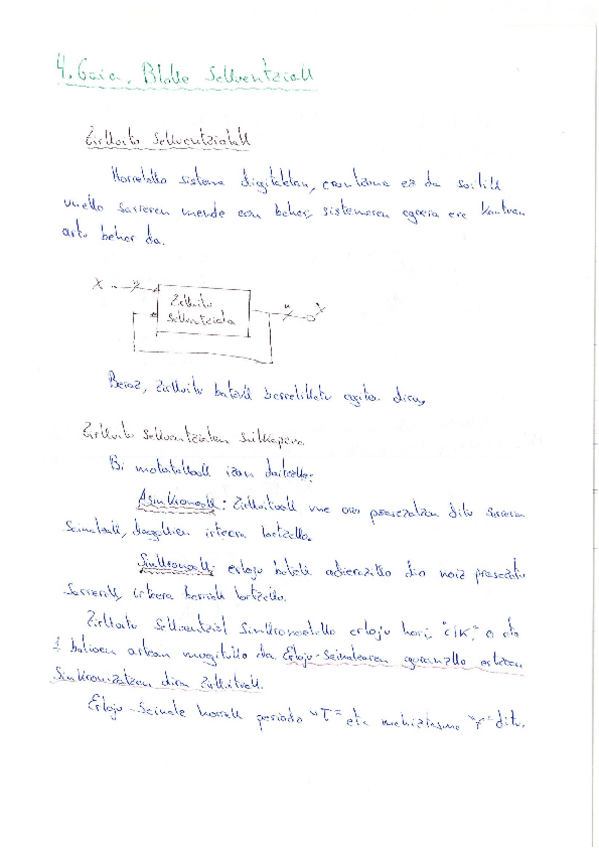 4. Gaia. Bloke Sekuentzialak
Zirkuitu Sekuentzialak
Horrelako sistema digitaletan, erantzuna ez da soilik
uneko sarreren mende egon behar, sistemaren egoera ere kontuan
artu behar da.
X n n Y
Zirkuitu
Sekuentziala
Beraz, zirkuitu batzuk berrelikatu egiten dira.
Zirkuitu sekuentzialen sailkapena
Bi motatakoak izan daitezke:
Asinkronoak: Zirkuituak une oro prozesatzen ditu sarrera
seinaleak, dagokien irteera lortzeko.
Sinkronoak: erloju batek adieraziko dio noiz prozesatu
sarrerak, irteera berriak lortzeko.
Zirkuitu Sekuentzial sinkronoetako erloju hori, "CLK," 0 eta
1 balioen artean mugituko da. Erloju-seinalearen goranzko ertzean
Sinkronizatzen dira zirkuituak.
Erloju-Seinale horrek periodo "T" eta "r" ditu.